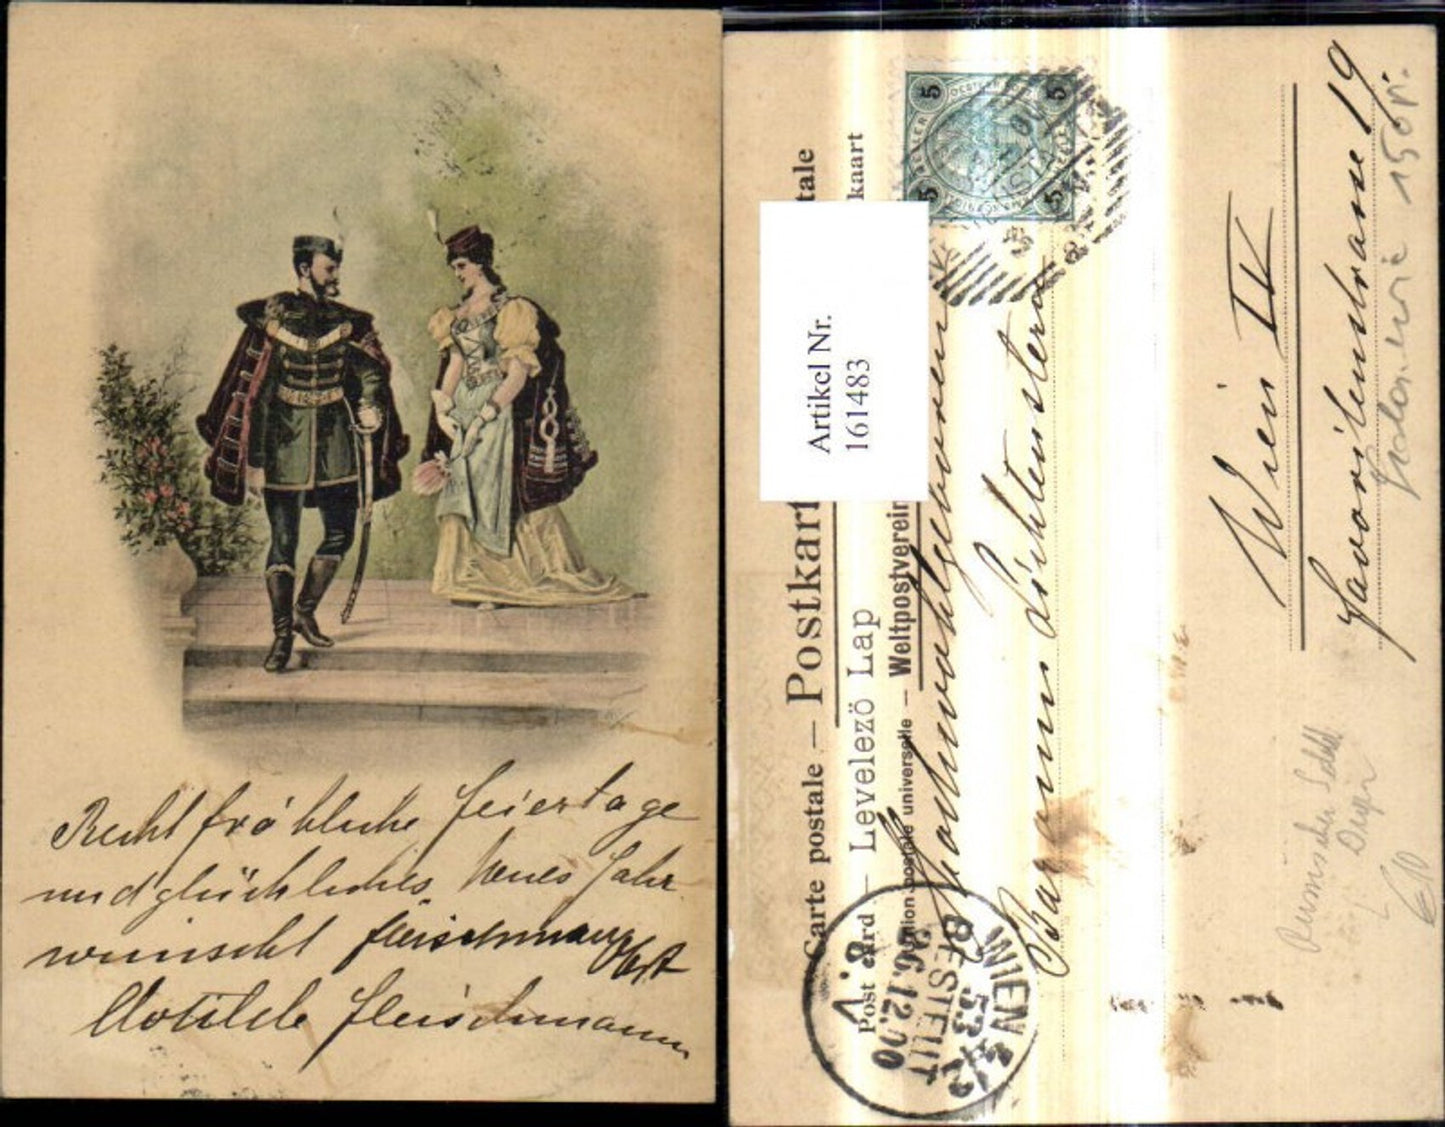 Recht fröhliche Feiertage
und glückliches Neues Jahr
wünscht Fleischmann
Clotilde Fleischmann
Carte postale — Postkart
Post card — Levelezö Lap
kaart
Union postale universelle — Weltpostverein
Artikel Nr.
161483
5 5
HELLER
5 5
Hochwohlgeboren
Baronin Lichtenstern
Wien IV
Favoritenstrasse 19
WIEN 4/1
53
BESTELLT
26.12.00
8.V
€ 10